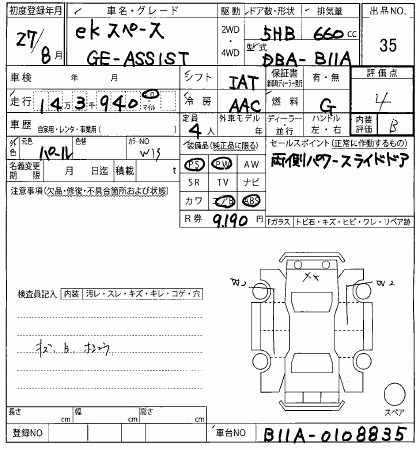 初度登録年月 車名・グレード 駆動 ドア数・形状 排気量 出品NO.
27/8月 ekスペース 2WD・4WD 5HB 660cc 35
G E-ASSIST 型式 DBA-B11A
車検 年 月 シフト IAT 保証書 有・無 評価点
走行 14万3千940 km マイル 冷房 AAC 燃料 G 4
車歴 自家用・レンタ・事業用( ) 定員 4人 外車モデル 年 ディーラー・並行 ハンドル 左・右 内装評価 B
外色 元色 パール 色替 カラーNO W13 装備品(純正品に限る) セールスポイント(正常に作動するもの)
名義変更期限 月 日迄 積載 t PS PW AW 両側パワースライドドア
注意事項(欠品・修復・不具合箇所および状態) SR TV ナビ
カワ エアB ABS
R券 9,190円 Fガラス トビ石・キズ・ヒビ・ワレ・リペア跡
検査員記入 内装 汚レ・スレ・キズ・キレ・コゲ・穴
W2 XX W2
スペア
長さ cm 幅 cm 高さ cm
登録NO 車台NO B11A-0108835